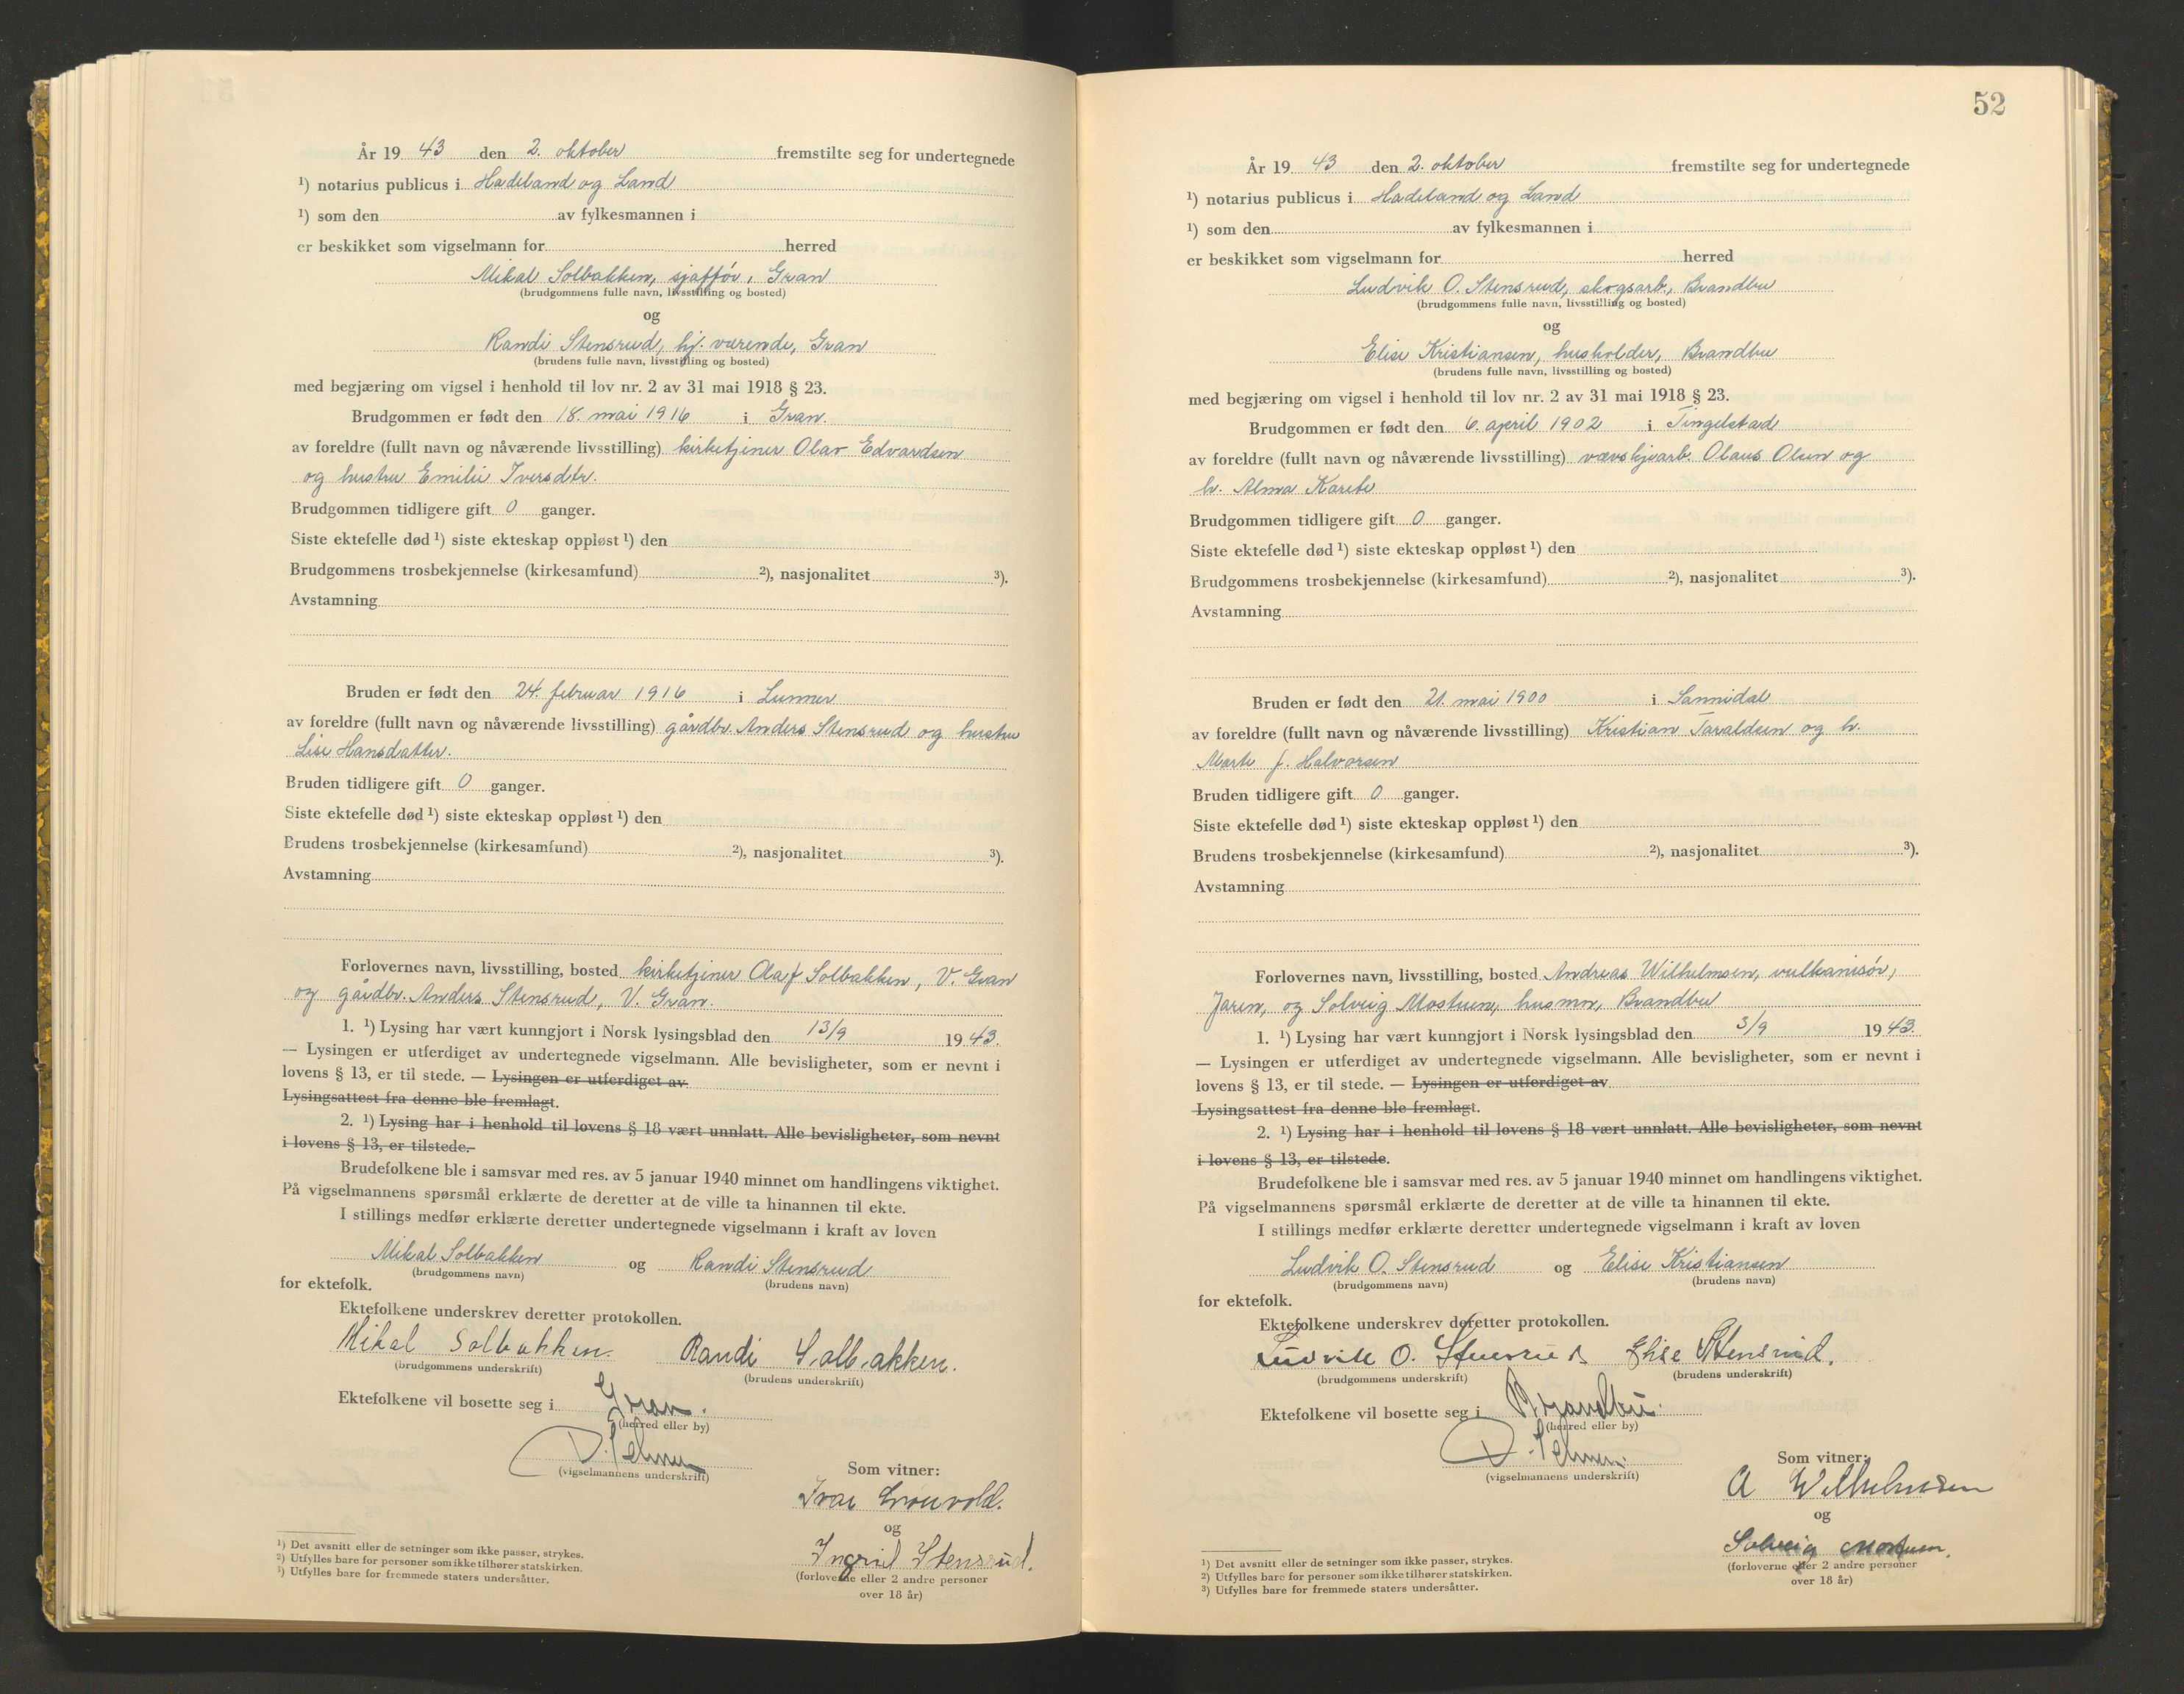 År 19 43 den 2. oktober fremstilte seg for undertegnede
¹) notarius publicus i Hadeland og Land
¹) som den av fylkesmannen i
er beskikket som vigselmann for herred
Mikal Solbakken, sjåffør, Gran
(brudgommens fulle navn, livsstilling og bosted)
og
Randi Stensrud, hj. værende, Gran
(brudens fulle navn, livsstilling og bosted)
med begjæring om vigsel i henhold til lov nr. 2 av 31 mai 1918 § 23.
Brudgommen er født den 18. mai 1916 i Gran.
av foreldre (fullt navn og nåværende livsstilling) kirketjener Olav Edvardsen
og hustru Emilie Iversdtr.
Brudgommen tidligere gift 0 ganger.
Siste ektefelle død ¹) siste ekteskap oppløst ¹) den
Brudgommens trosbekjennelse (kirkesamfund) ²), nasjonalitet ³).
Avstamning
Bruden er født den 24. februar 1916 i Lunner
av foreldre (fullt navn og nåværende livsstilling) gårdbr. Anders Stensrud og hustru
Lise Hansdatter.
Bruden tidligere gift 0 ganger.
Siste ektefelle død ¹) siste ekteskap oppløst ¹) den
Brudens trosbekjennelse (kirkesamfund) ²), nasjonalitet ³).
Avstamning
Forlovernes navn, livsstilling, bosted kirketjener Olaf Solbakken, V. Gran
og gårdbr. Anders Stensrud, V. Gran.
1. ¹) Lysing har vært kunngjort i Norsk lysingsblad den 13/9 19 43.
— Lysingen er utferdiget av undertegnede vigselmann. Alle bevisligheter, som er nevnt i
lovens § 13, er til stede. — Lysingen er utferdiget av
Lysingsattest fra denne ble fremlagt.
2. ¹) Lysing har i henhold til lovens § 18 vært unnlatt. Alle bevisligheter, som nevnt
i lovens § 13, er tilstede.
Brudefolkene ble i samsvar med res. av 5 januar 1940 minnet om handlingens viktighet.
På vigselmannens spørsmål erklærte de deretter at de ville ta hinannen til ekte.
I stillings medfør erklærte deretter undertegnede vigselmann i kraft av loven
Mikal Solbakken og Randi Stensrud
(brudgommens navn) (brudens navn)
for ektefolk.
Ektefolkene underskrev deretter protokollen.
Mikal Solbakken. Randi Solbakken.
(brudgommens underskrift) (brudens underskrift)
Ektefolkene vil bosette seg i Gran.
(herred eller by)
(vigselmannens underskrift)
Som vitner:
Ivar Grønvold.
og
Ingrid Stensrud.
(forloverne eller 2 andre personer
over 18 år)
¹) Det avsnitt eller de setninger som ikke passer, strykes.
²) Utfylles bare for personer som ikke tilhører statskirken.
³) Utfylles bare for fremmede staters undersåtter.
52
År 19 43 den 2. oktober fremstilte seg for undertegnede
¹) notarius publicus i Hadeland og Land
¹) som den av fylkesmannen i
er beskikket som vigselmann for herred
Ludvik O. Stensrud, skogsarb., Brandbu
(brudgommens fulle navn, livsstilling og bosted)
og
Elise Kristiansen, husholder, Brandbu
(brudens fulle navn, livsstilling og bosted)
med begjæring om vigsel i henhold til lov nr. 2 av 31 mai 1918 § 23.
Brudgommen er født den 6. april 1902 i Tingelstad
av foreldre (fullt navn og nåværende livsstilling) Olaus Olsen og
h. Alma Karete
Brudgommen tidligere gift 0 ganger.
Siste ektefelle død ¹) siste ekteskap oppløst ¹) den
Brudgommens trosbekjennelse (kirkesamfund) ²), nasjonalitet ³).
Avstamning
Bruden er født den 21. mai 1900 i Sannidal
av foreldre (fullt navn og nåværende livsstilling) Kristian Taraldsen og h.
Marte f. Halvorsen
Bruden tidligere gift 0 ganger.
Siste ektefelle død ¹) siste ekteskap oppløst ¹) den
Brudens trosbekjennelse (kirkesamfund) ²), nasjonalitet ³).
Avstamning
Forlovernes navn, livsstilling, bosted Andreas Wilhelmsen, vulkanisør,
Jaren, og Solveig Mostuen, husmor, Brandbu
1. ¹) Lysing har vært kunngjort i Norsk lysingsblad den 3/9 19 43.
— Lysingen er utferdiget av undertegnede vigselmann. Alle bevisligheter, som er nevnt i
lovens § 13, er til stede. — Lysingen er utferdiget av
Lysingsattest fra denne ble fremlagt.
2. ¹) Lysing har i henhold til lovens § 18 vært unnlatt. Alle bevisligheter, som nevnt
i lovens § 13, er tilstede.
Brudefolkene ble i samsvar med res. av 5 januar 1940 minnet om handlingens viktighet.
På vigselmannens spørsmål erklærte de deretter at de ville ta hinannen til ekte.
I stillings medfør erklærte deretter undertegnede vigselmann i kraft av loven
Ludvik O. Stensrud og Elise Kristiansen
(brudgommens navn) (brudens navn)
for ektefolk.
Ektefolkene underskrev deretter protokollen.
Ludvik O. Stensrud Elise Stensrud.
(brudgommens underskrift) (brudens underskrift)
Ektefolkene vil bosette seg i Brandbu.
(herred eller by)
(vigselmannens underskrift)
Som vitner:
A Wilhelmsen
og
Solveig Mostuen.
(forloverne eller 2 andre personer
over 18 år)
¹) Det avsnitt eller de setninger som ikke passer, strykes.
²) Utfylles bare for personer som ikke tilhører statskirken.
³) Utfylles bare for fremmede staters undersåtter.